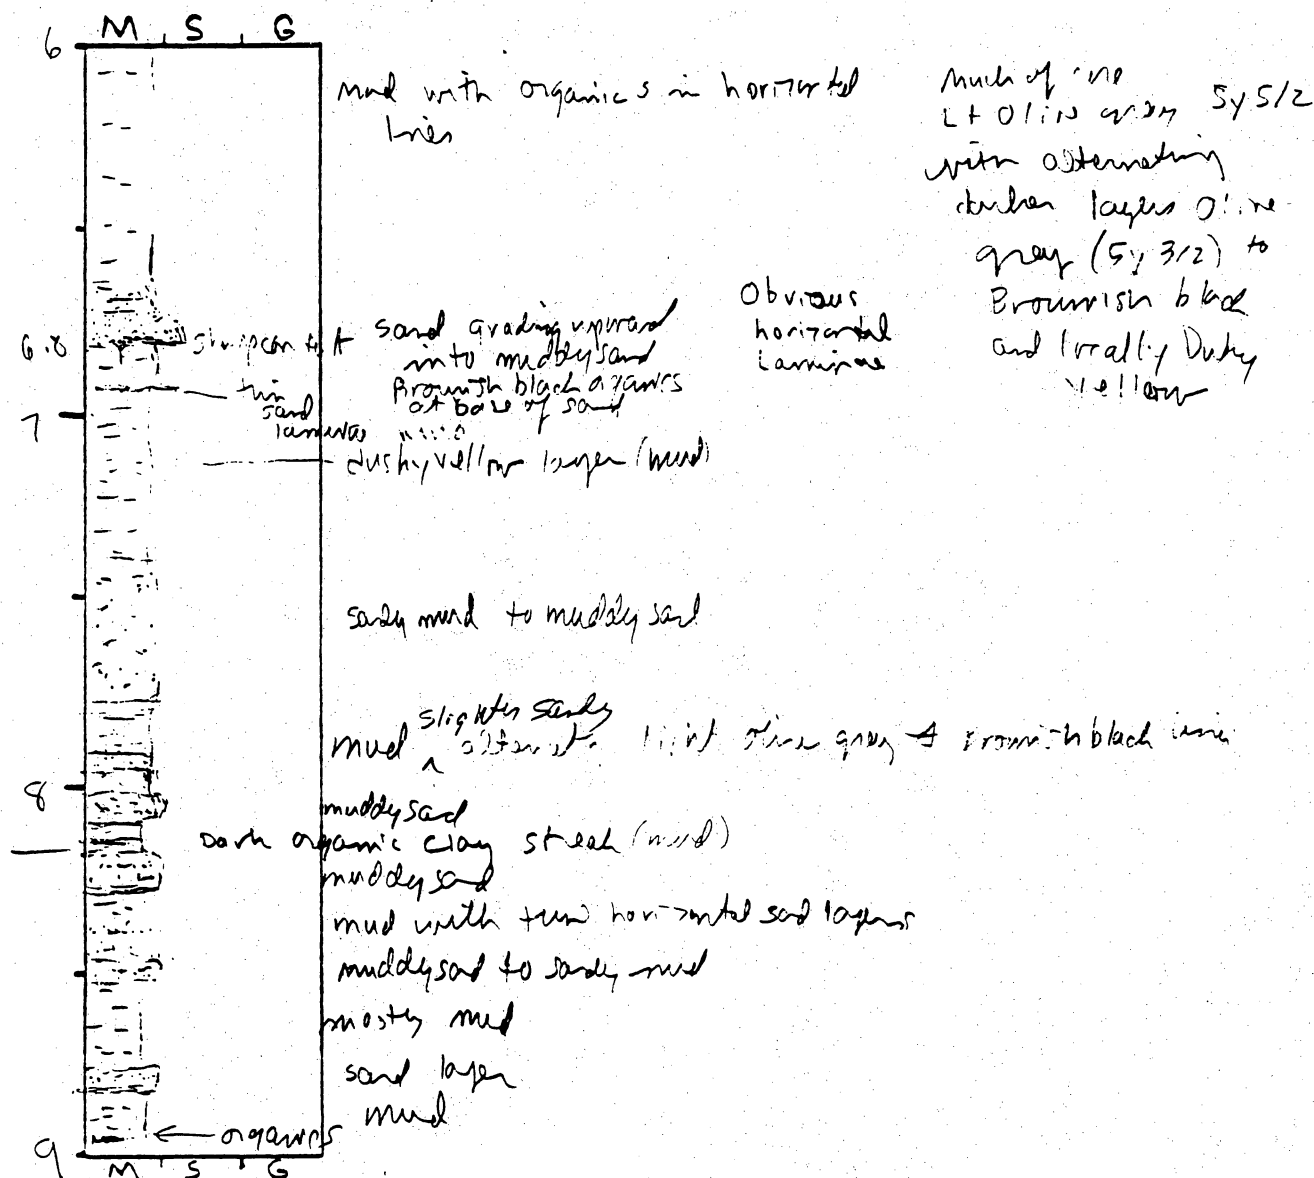 M S G
6
mud with organics in horizontal
lines
Much of
Lt Olive gray 5y 5/2
with alternating
darker layers Olive
gray (5y 3/2) to
Brownish black
and locally Dusky
Yellow
Obvious
horizontal
Laminae
6.8
sharp contact
sand grading upward
into muddy sand
Brownish black organics
at base of sand
thin
sand
laminae
7
dusky yellow layer (mud)
sandy mud to muddy sand
slightly sandy
mud ^ light olive gray brownish black
8
muddy sand
Dark organic clay streak (mud)
muddy sand
mud with thin horizontal sand layers
muddy sand to sandy mud
mostly mud
sand layer
mud
organics
9
M S G